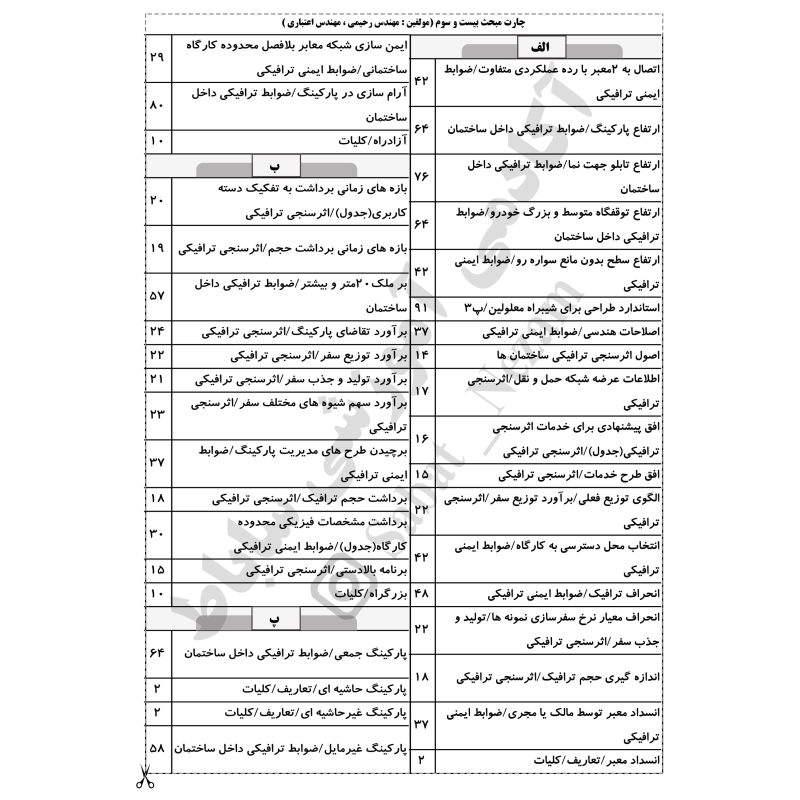 چارت مبحث بیست و سوم (مولفین : مهندس رحیمی ، مهندس اعتباری )
الف
اتصال به ۲معبر با رده عملکردی متفاوت/ضوابط
ایمنی ترافیکی
۴۲
ارتفاع پارکینگ/ضوابط ترافیکی داخل ساختمان
۶۴
ارتفاع تابلو جهت نما/ضوابط ترافیکی داخل
ساختمان
۷۶
ارتفاع توقفگاه متوسط و بزرگ خودرو/ضوابط
ترافیکی داخل ساختمان
۶۴
ارتفاع سطح بدون مانع سواره رو/ضوابط ایمنی
ترافیکی
۴۲
استاندارد طراحی برای شیبراه معلولین/پ۳
۹۱
اصلاحات هندسی/ضوابط ایمنی ترافیکی
۳۷
اصول اثرسنجی ترافیکی ساختمان ها
۱۴
اطلاعات عرضه شبکه حمل و نقل/اثرسنجی
ترافیکی
۱۷
افق پیشنهادی برای خدمات اثرسنجی
ترافیکی(جدول)/اثرسنجی ترافیکی
۱۶
افق طرح خدمات/اثرسنجی ترافیکی
۱۵
الگوی توزیع فعلی/برآورد توزیع سفر/اثرسنجی
ترافیکی
۲۲
انتخاب محل دسترسی به کارگاه/ضوابط ایمنی
ترافیکی
۴۲
انحراف ترافیک/ضوابط ایمنی ترافیکی
۴۸
انحراف معیار نرخ سفرسازی نمونه ها/تولید و
جذب سفر/اثرسنجی ترافیکی
۲۲
اندازه گیری حجم ترافیک/اثرسنجی ترافیکی
۱۸
انسداد معبر توسط مالک یا مجری/ضوابط ایمنی
ترافیکی
۳۷
انسداد معبر/تعاریف/کلیات
۲
ایمن سازی شبکه معابر بلافصل محدوده کارگاه
ساختمانی/ضوابط ایمنی ترافیکی
۲۹
آرام سازی در پارکینگ/ضوابط ترافیکی داخل
ساختمان
۸۰
آزادراه/کلیات
۱۰
ب
بازه های زمانی برداشت به تفکیک دسته
کاربری(جدول)/اثرسنجی ترافیکی
۲۰
بازه های زمانی برداشت حجم/اثرسنجی ترافیکی
۱۹
بر ملک۲۰متر و بیشتر/ضوابط ترافیکی داخل
ساختمان
۵۷
برآورد تقاضای پارکینگ/اثرسنجی ترافیکی
۲۴
برآورد توزیع سفر/اثرسنجی ترافیکی
۲۲
برآورد تولید و جذب سفر/اثرسنجی ترافیکی
۲۱
برآورد سهم شیوه های مختلف سفر/اثرسنجی
ترافیکی
۲۳
برچیدن طرح های مدیریت پارکینگ/ضوابط
ایمنی ترافیکی
۳۷
برداشت حجم ترافیک/اثرسنجی ترافیکی
۱۸
برداشت مشخصات فیزیکی محدوده
کارگاه(جدول)/ضوابط ایمنی ترافیکی
۳۰
برنامه بالادستی/اثرسنجی ترافیکی
۱۵
بزرگراه/کلیات
۱۰
پ
پارکینگ جمعی/ضوابط ترافیکی داخل ساختمان
۶۴
پارکینگ حاشیه ای/تعاریف/کلیات
۲
پارکینگ غیرحاشیه ای/تعاریف/کلیات
۲
پارکینگ غیرمایل/ضوابط ترافیکی داخل ساختمان
۵۸
آکادمی آموزشی ساباط
Sabat_Nezam